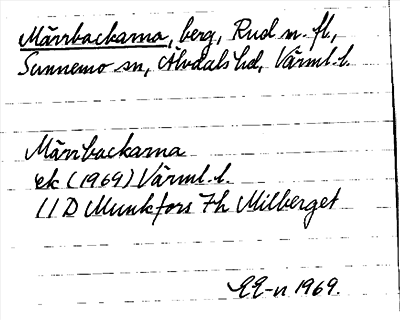 Märrbackarna, berg, Rud m. fl.,
Sunnemo sn, Älvdals hd, Värml. l.
Märrbackarna
ek (1969) Värml. l.
11 D Munkfors 7h Milberget
1969.